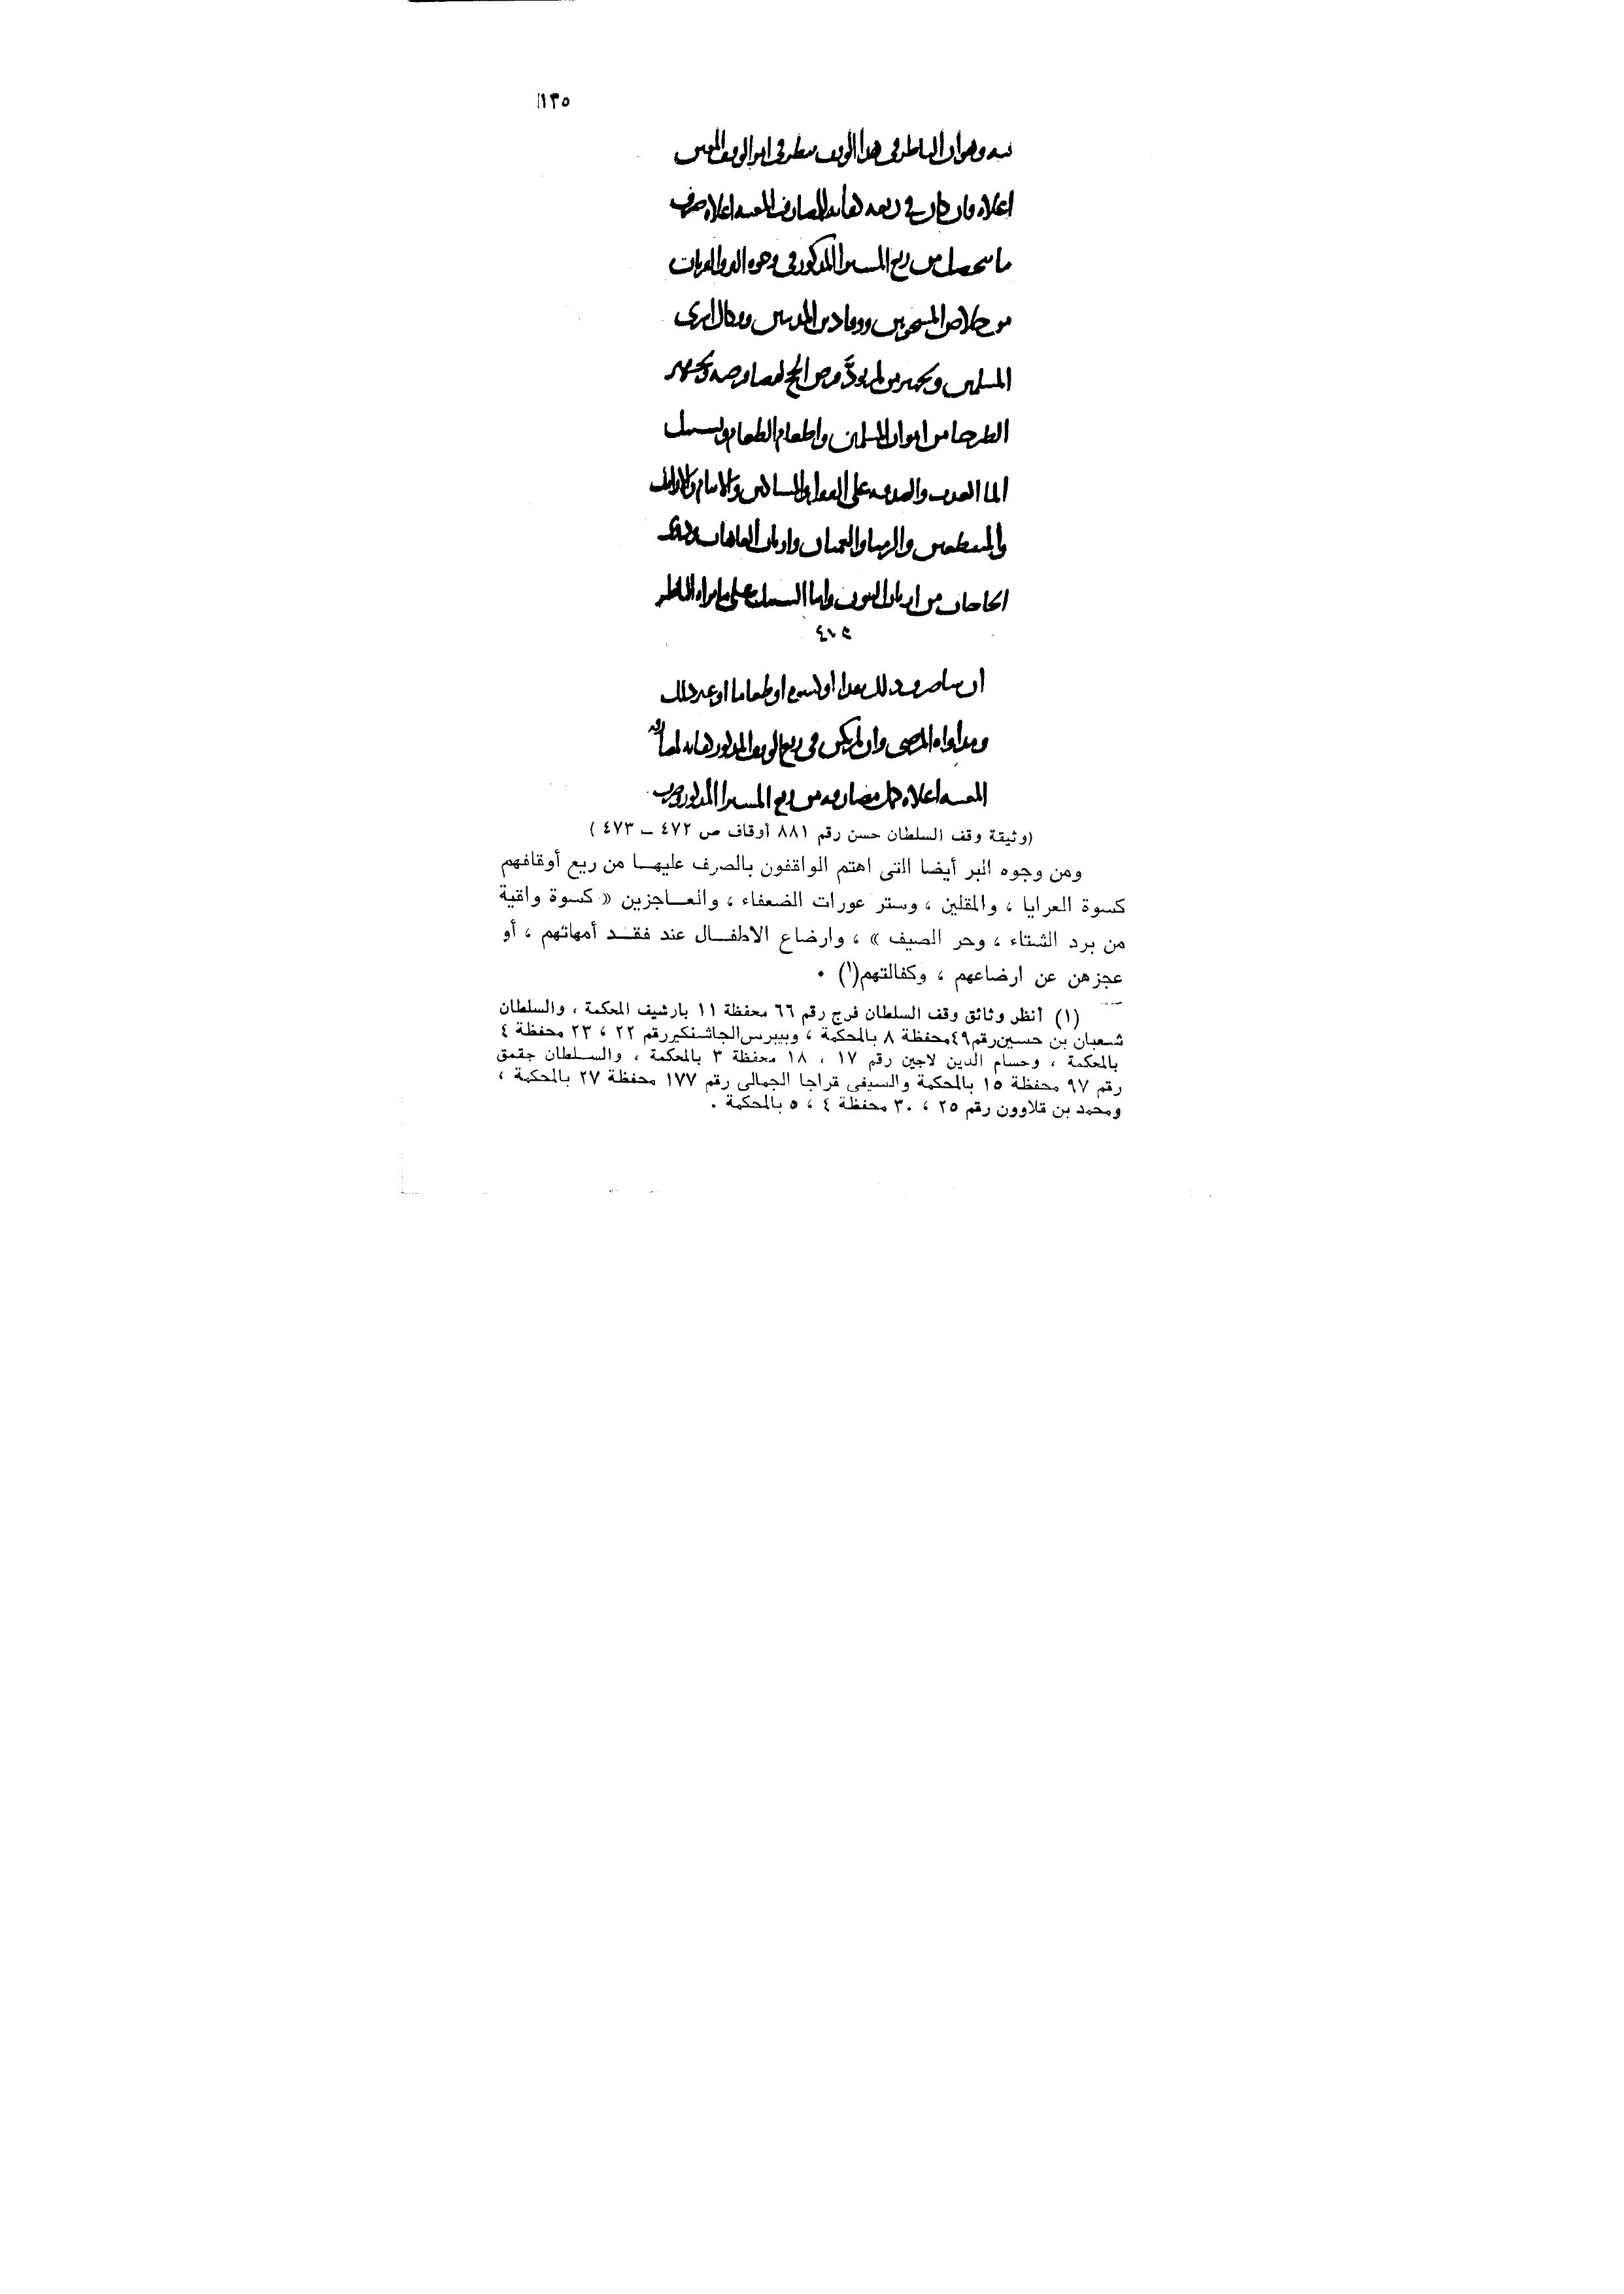 ١٣٥
وهو ان الناظر فى هذا الوقف ينظر فى امر الوقف المعين
اعلاه فان كان فى ريعه كفاية المصارف المعينة اعلاه صرف
ما يتحصل من ريع المذكور فى وجوه البر والقربات
من خلاص المسجونين ووفا دين المدينين وفكاك اسرى
المسلمين وتجهيز من لم يود فرض الحج لقضا فرضه وتجهيز
الطرحا من اموات المسلمين واطعام الطعام وتسبيل
الما العذب والصدقة على الفقرا والمساكين والايتام والارامل
والمنقطعين والزمنا والعميان وارباب العاهات وذوى
الحاجات من ارباب البيوت وابنا السبيل على ما يراه الناظر
ان شا صرف ذلك نقدا او كسوة او طعاما او غير ذلك
ومداواه المرضى وان لم يكن فى ريع الوقف المذكور كفاية لمصارفه
المعينة اعلاه كمل مصارفه من ريع المذكور وصرف
(وثيقة وقف السلطان حسن رقم ٨٨١ أوقاف ص ٤٧٢ ــ ٤٧٣ )
ومن وجوه البر أيضا التى اهتم الواقفون بالصرف عليهــا من ريع أوقافهم
كسوة العرايا ، والمقلين ، وستر عورات الضعفاء ، والعــاجزين « كسوة واقية
من برد الشتاء ، وحر الصيف » ، وارضاع الاطفــال عند فقــد أمهاتهم ، أو
عجزهن عن ارضاعهم ، وكفالتهم(١) ٠
(١) أنظر وثائق وقف السلطان فرج رقم ٦٦ محفظة ١١ بارشيف المحكمة ، والسلطان
شعبان بن حسين رقم ٤٩ محفظة ٨ بالمحكمة ، وبيبرس الجاشنكير رقم ٢٢ ، ٢٣ محفظة ٤
بالمحكمة ، وحسام الدين لاجين رقم ١٧ ، ١٨ محفظة ٣ بالمحكمة ، والسلطان جقمق
رقم ٩٧ محفظة ١٥ بالمحكمة والسيفى قراجا الجمالى رقم ١٧٧ محفظة ٢٧ بالمحكمة ،
ومحمد بن قلاوون رقم ٢٥ ، ٣٠ محفظة ٤ ، ٥ بالمحكمة .